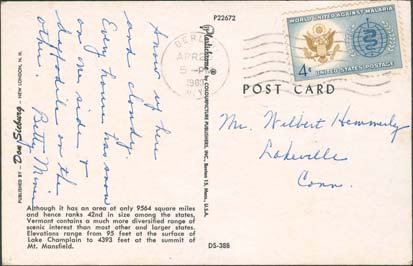 P22672
WORLD UNITED AGAINST MALARIA
4¢
UNITED STATES POSTAGE
BERLIN
APR 20
5 - PM
1963
N.Y.
POST CARD
Mr. Wilbert Hemmerly
Lakeville
Conn.
Snow up here
and cloudy.
Every house has snow
on one side &
daffodils on the
other. Betty Miner
PUBLISHED BY - Don Sieburg - NEW LONDON, N. H.
by COLOURPICTURE PUBLISHERS, INC., Boston 15, Mass., U.S.A.
Although it has an area at only 9564 square miles
and hence ranks 42nd in size among the states,
Vermont contains a much more diversified range of
scenic interest than most other and larger states.
Elevations range from 95 feet at the surface of
Lake Champlain to 4393 feet at the summit of
Mt. Mansfield.
DS-388